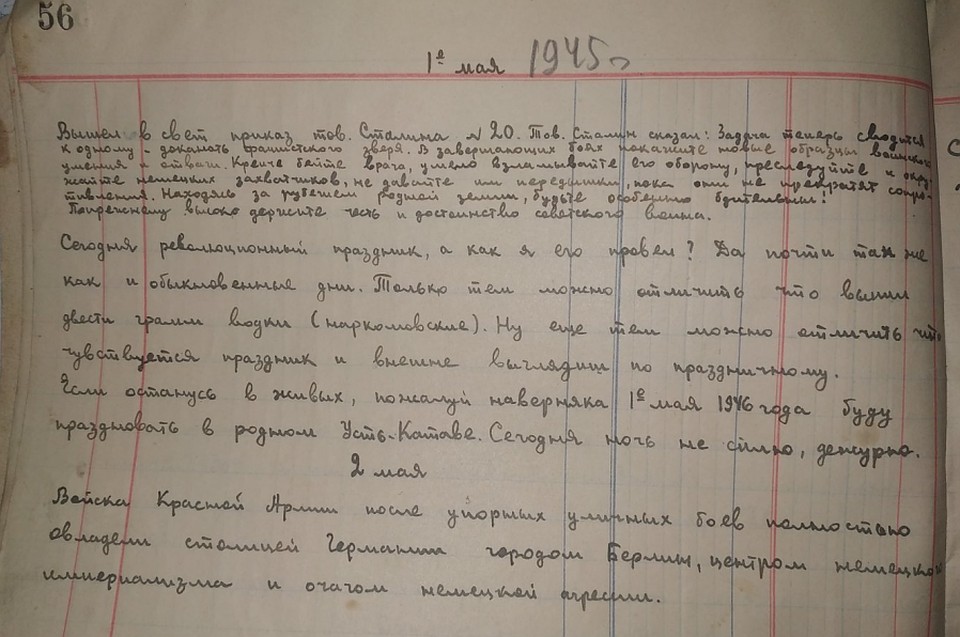 56
1е мая 1945г
Вышел в свет приказ тов. Сталина № 20. Тов. Сталин сказал: Задача теперь сводится
к одному - доканать фашистского зверя. В завершающих боях покажите новые образцы воинского
умения и отваги. Крепче бейте врага, умело взламывайте его оборону, преследуйте и окру-
жайте немецких захватчиков, не давайте им передышки, пока они не прекратят сопро-
тивления. Находясь за рубежом родной земли, будьте особенно бдительны!
Попрежнему высоко держите честь и достоинство советского воина.
Сегодня революционный праздник, а как я его провел? Да почти так же
как и обыкновенные дни. Только тем можно отличить что выпили
двести грамм водки (наркомовские). Ну еще тем можно отличить что
чувствуется праздник и внешне выглядиш по праздничному.
Если останусь в живых, пожалуй наверняка 1е мая 1946 года буду
праздновать в родном Усть-Катаве. Сегодня ночь не сплю, дежурю.
2 мая
Войска Красной Армии после упорных уличных боев полностью
овладели столицей Германии городом Берлин, центром немецкого
империализма и очагом немецкой агресии.